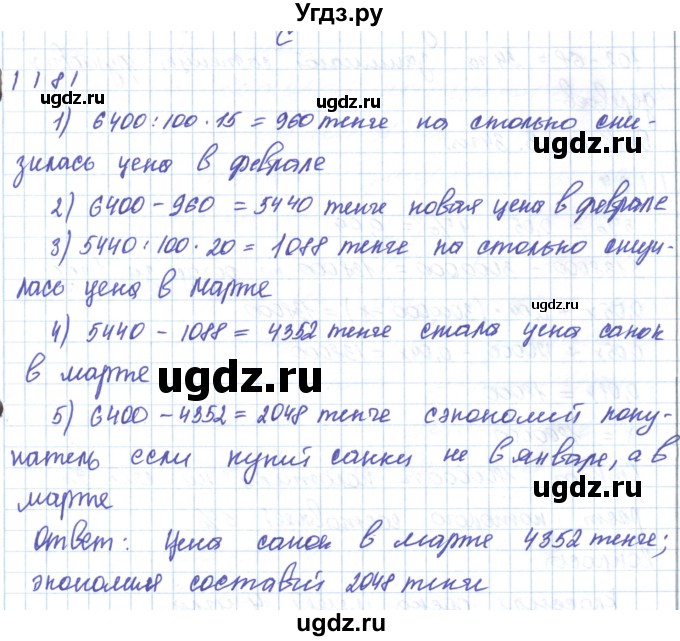 Угдз.ру
С
1181
1) 6400:100·15 = 960 тенге на столько сни-
ugdz.ru
зилась цена в феврале
2) 6400 - 960 = 5440 тенге новая цена в феврале
3) 5440:100·20 = 1088 тенге на столько снизи-
ugdz.ru
лась цена в марте
ugdz.ru
4) 5440 - 1088 = 4352 тенге стала цена санок
в марте
ugdz.ru
ugdz.ru
5) 6400 - 4352 = 2048 тенге сэкономил поку-
патель если купил санки не в январе, а в
ugdz.ru
марте
Ответ: Цена санок в марте 4352 тенге;
экономия составил 2048 тенге
ugdz.ru
ugdz.ru